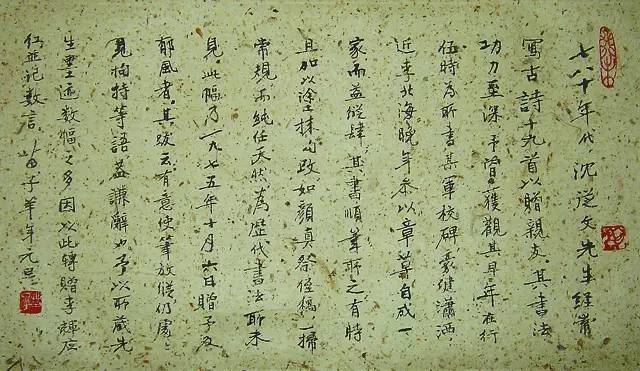 七八十年代沈從文先生經常
寫古詩十九首以贈親友。其書法
功力至深，予曾獲觀其早年在行
伍時為所書某軍校碑，豪健瀟洒，
近李北海，晚年參以章草，自成一
家而益縱肆。其書順筆所之，有時
且加以塗抹勾改，如顏真祭侄稿，一掃
常規，而純任天然，為歷代書法所未
見。此幅乃一九七五年十月六日贈予及
郁風者。其跋云有意使筆放縱仍處處
見拘持等語，益謙辭也。予以所藏先
生墨迹數幅之多，因以此轉贈李輝应
红並記數言。苗子羊年元旦